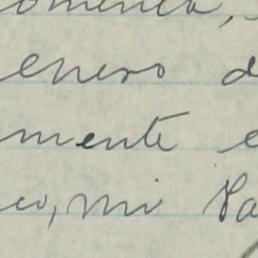 omenta,
enero d
mente e
co, mi Pa